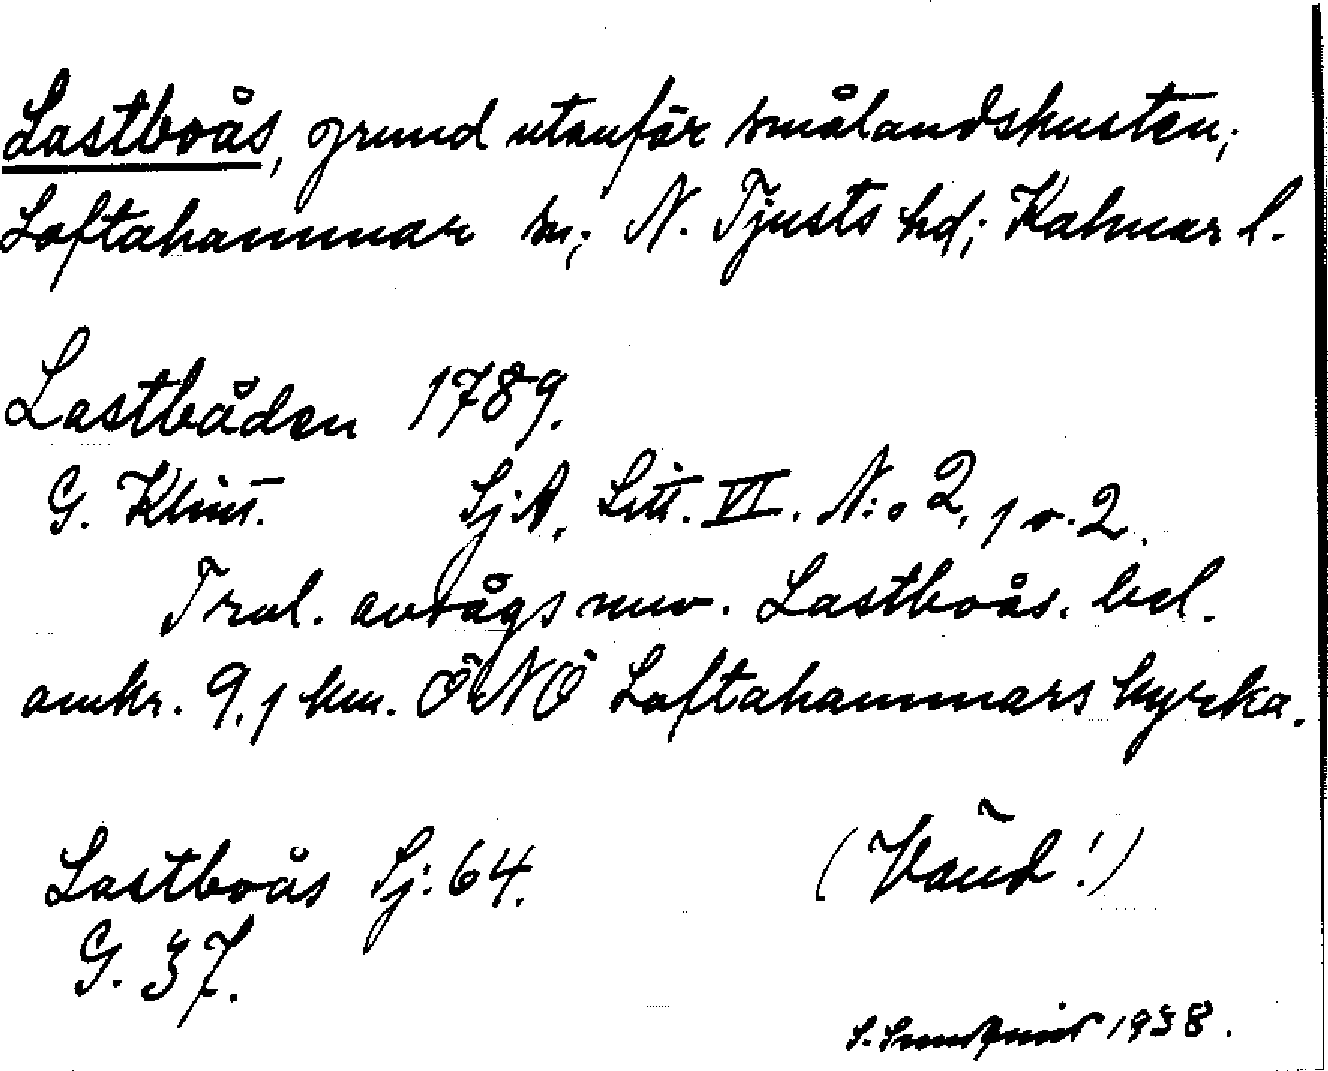 Lastboås, grund utanför smålandskusten;
Loftahammar sn; N. Tjusts hd; Kalmar l.
Lastbåden 1789.
G. Klint. Sj.A. Litt. VI. N:o 2, 1 o. 2.
Trol. avsågs nuv. Lastboås. bel.
omkr. 9,1 km. ÖNÖ Loftahammars kyrka.
Lastboås Sj: 64. (Vänd!)
G. 37.
S. Sundquist 1938.